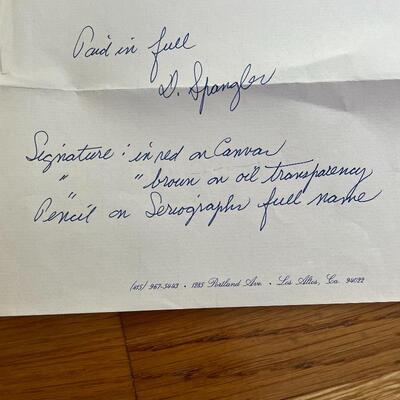 Paid in full
D. Spangler
Signature : in red on Canvas
" " brown on oil transparency
Pencil on Seriographs full name
(415) 967-5443 • 1285 Portland Ave. • Los Altos, Ca. 94022